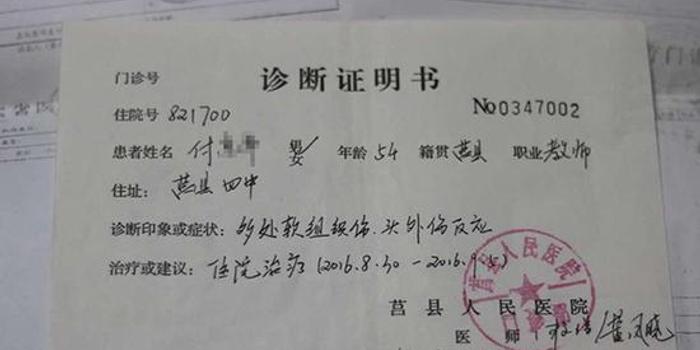 诊断证明书
门诊号
No0347002
住院号 821700
患者姓名 付 男/女 年龄 54 籍贯 莒县 职业 教师
住址: 莒县四中
诊断印象或症状: 多处软组织伤.头外伤反应
治疗或建议: 住院治疗 (2016.8.30—2016.9.
莒县人民医院
莒县人民医院
医师